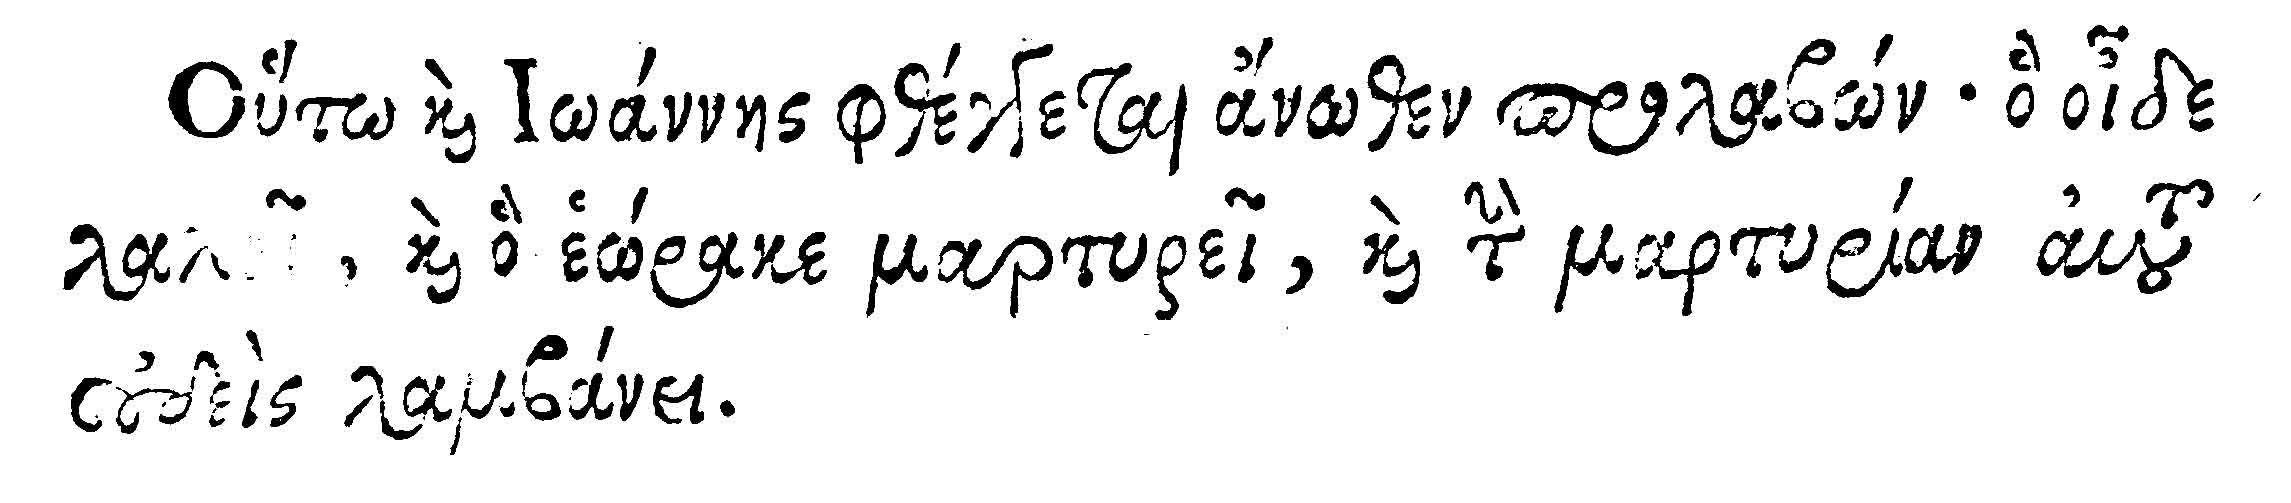 Οὕτω ϗ̀ Ἰωάννης φθέγγεται ἄνωθεν προλαβών · ὃ οἶδε
λαλεῖ, ϗ̀ ὃ ἑώρακε μαρτυρεῖ, ϗ̀ τὴν μαρτυρίαν αὐτοῦ
οὐδεὶς λαμβάνει.